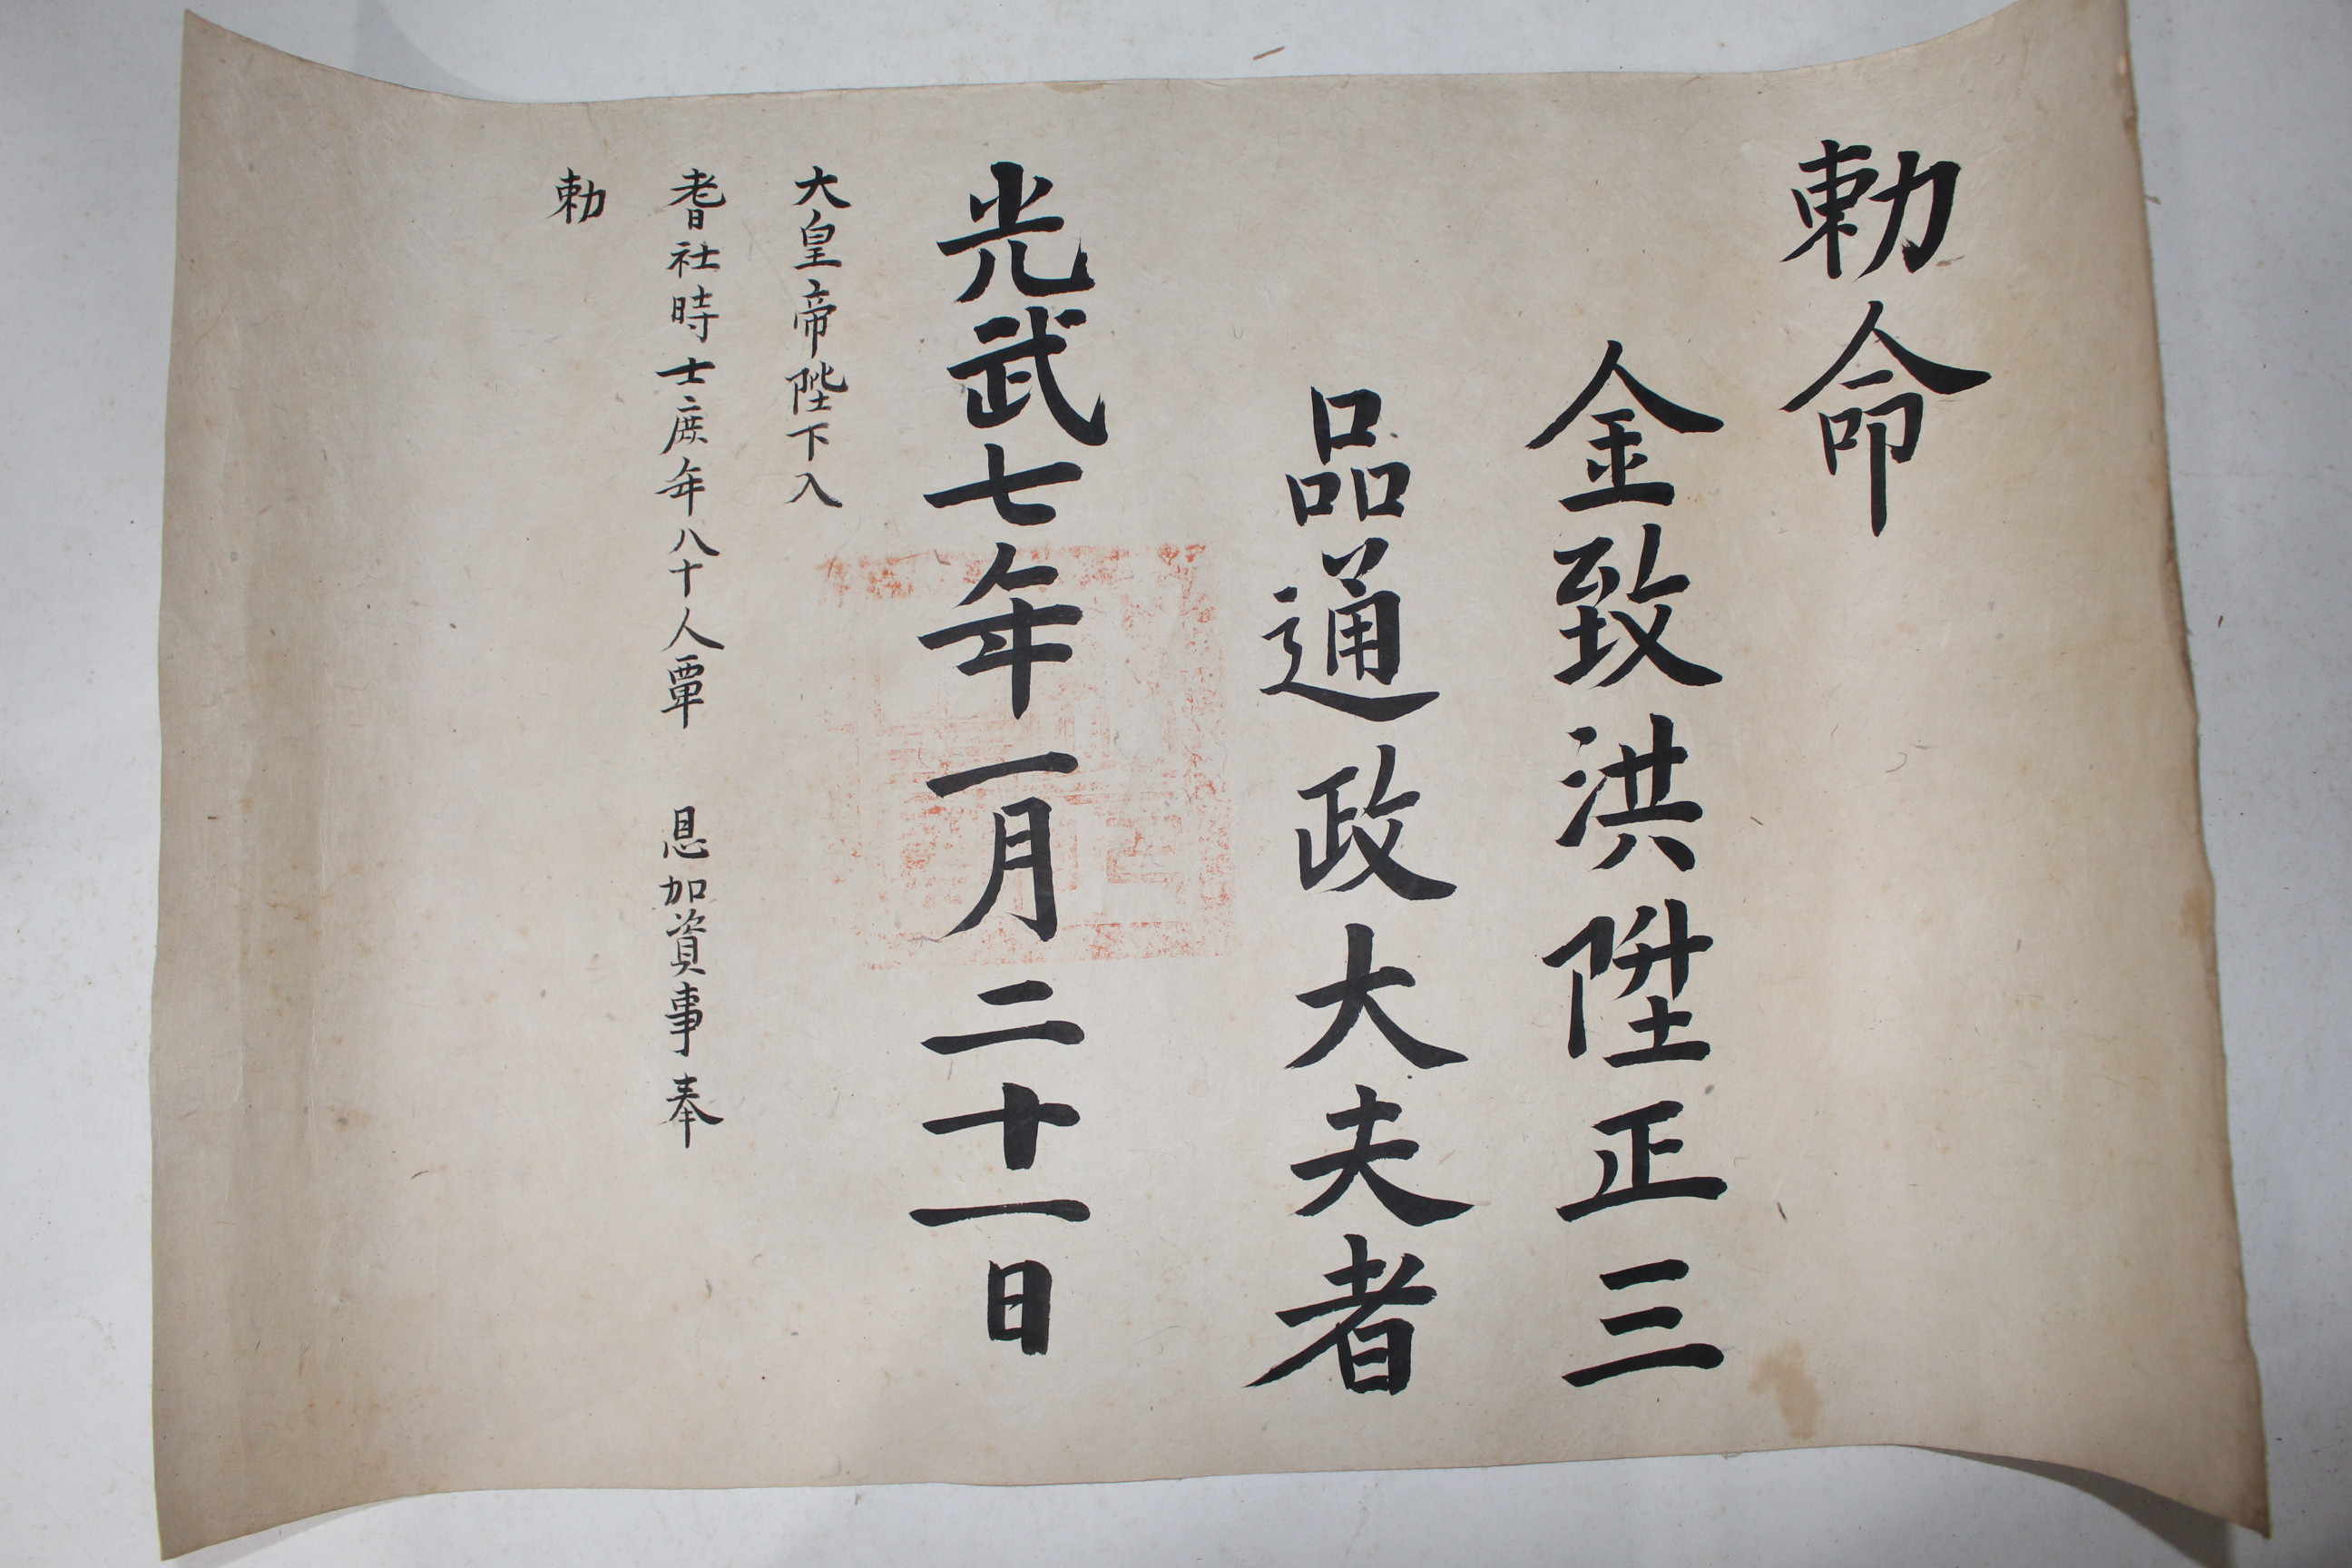 勅命
金致洪陞正三
品通政大夫者
光武七年一月二十一日
大皇帝陛下入
耆社時士庶年八十人覃 恩加資事奉
勅